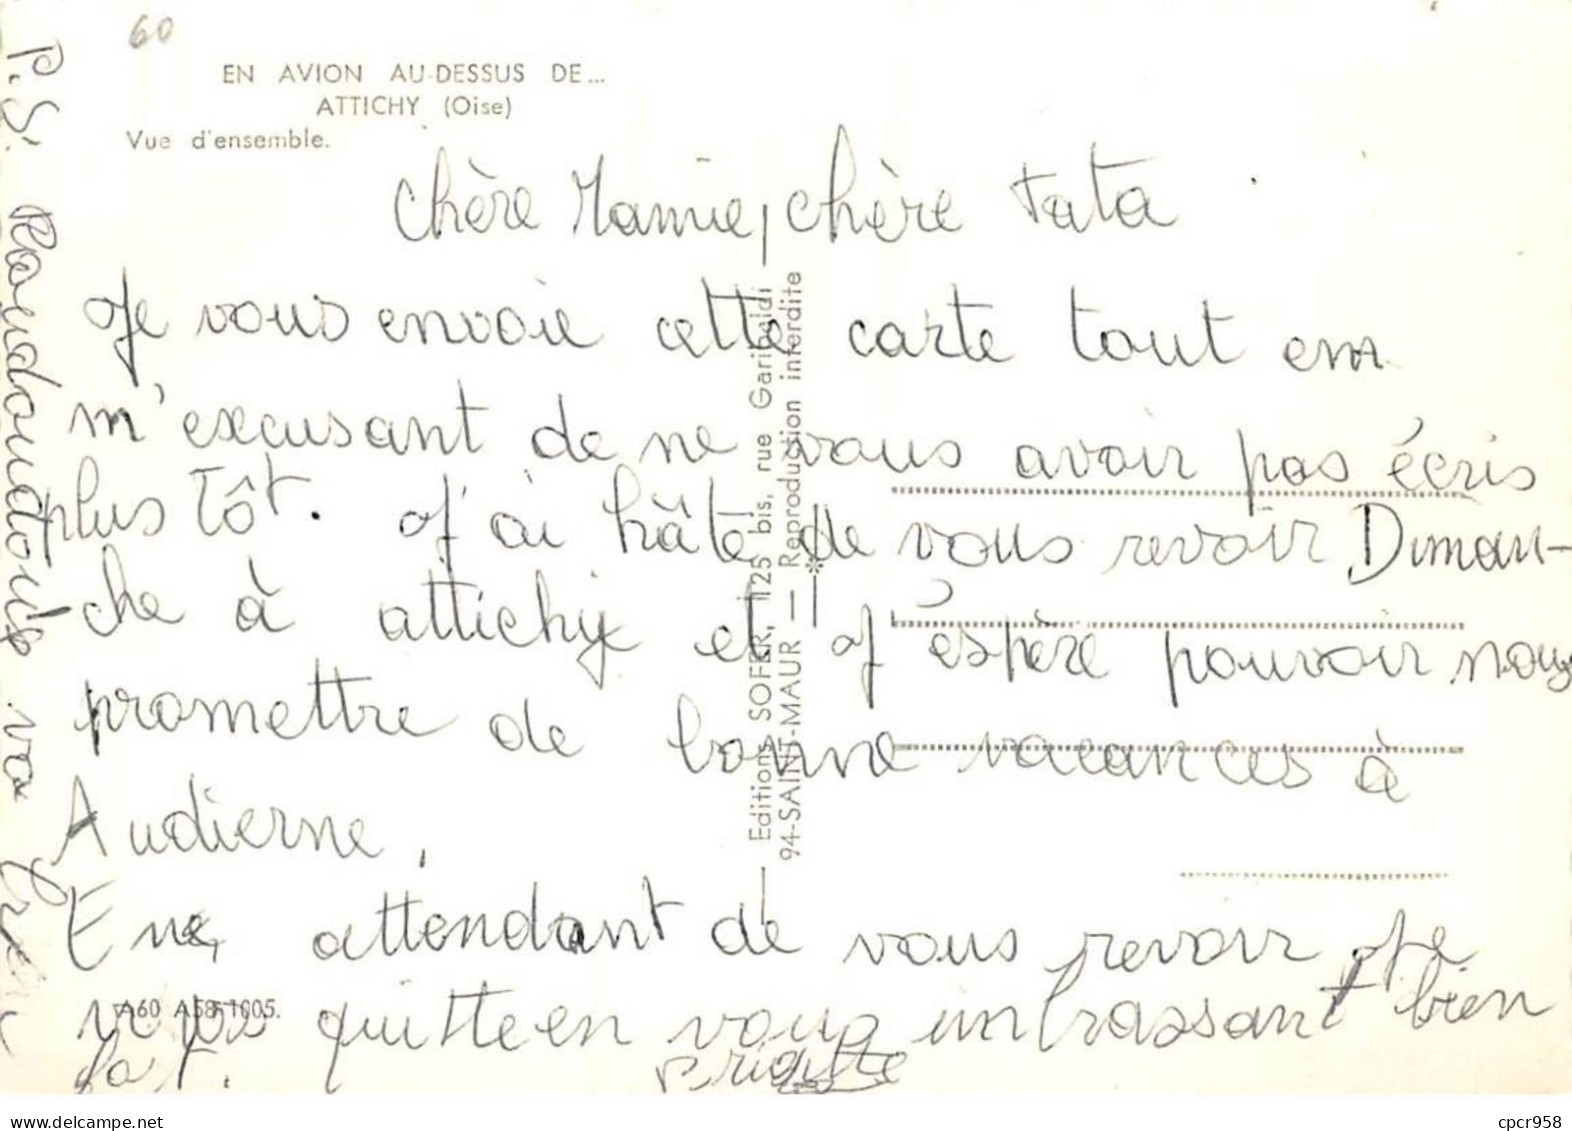 60
EN AVION AU-DESSUS DE...
ATTICHY (Oise)
Vue d'ensemble.
Chère Mamie, chère Tata
Je vous envoie cette carte tout en
m'excusant de ne vous avoir pas écris
plus tôt. J'ai hâte de vous revoir Diman-
che à attichy et j'espère pouvoir nous
promettre de bonne vacances à
Audierne,
En attendant de vous revoir Je
vous quitte en vous imbrassant bien
fort.
Brigitte
P.S. Roudoudou va
Editions SOFER, 125 bis, rue Garibaldi
94-SAINT-MAUR — Reproduction interdite
A60 A58-1005.
www.delcampe.net
cpcr958